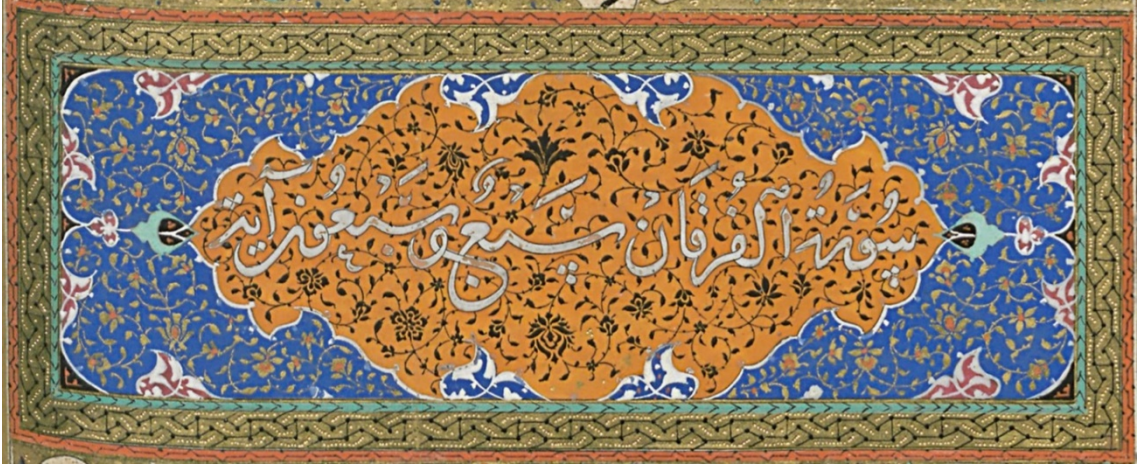 سورة الفرقان سبع وسبعون آية